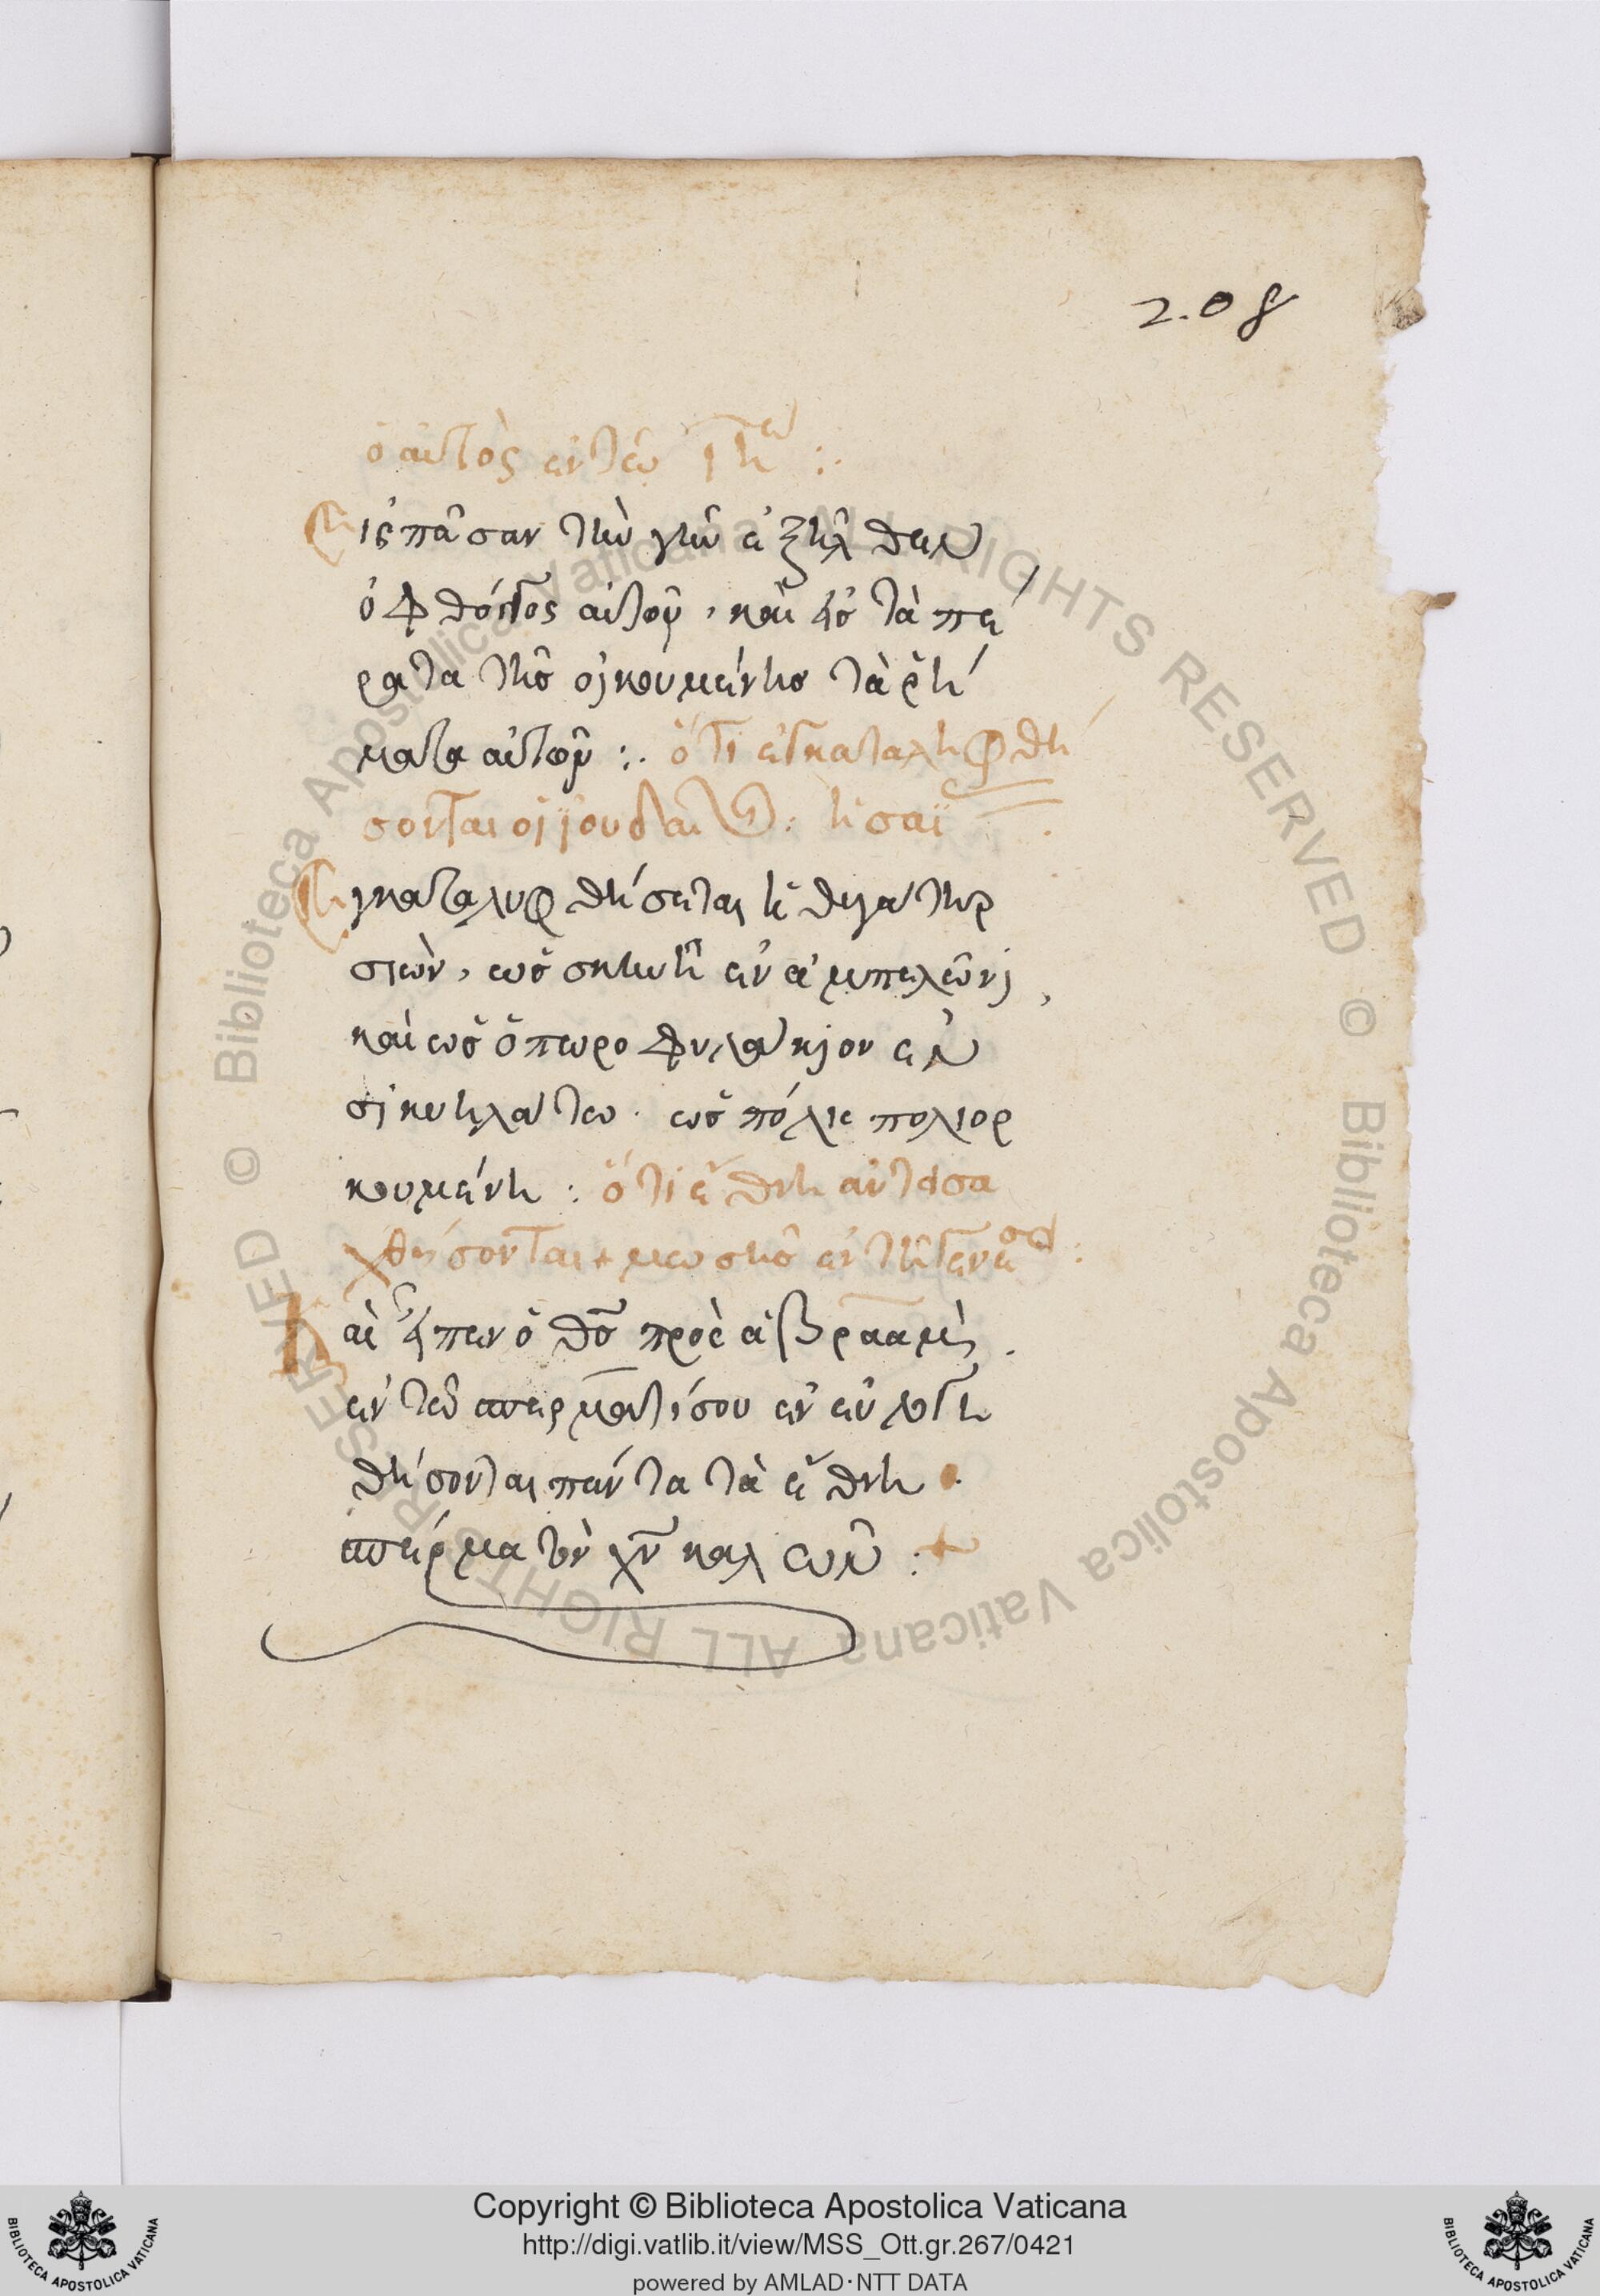 208
ὁ αὐτὸς ἐν τῶ ιη :.
Εἰς πᾶσαν τὴν γῆν ἐξῆλθεν
ὁ φθόγγος αὐτοῦ, καὶ εἰς τὰ πέ
ρατα τῆς οἰκουμένης τὰ ῥή
ματα αὐτοῦ :. ὅτι ἐγκαταληφθή
σονται οἱ ἰουδαῖοι : ἡσαΐ
Ἐγκαταλυφθήσεται ἡ θυγάτηρ
σιών, ὡς σκηνὴ ἐν ἀμπελῶνι,
καὶ ὡς ὀπωροφυλάκιον ἐν
σικυηλάτω. ὡς πόλις πολιορ
κουμένη : ὅτι ἔθνη ἀντισα
χθήσονται + μωσῆς ἐν τῆ γενέσει :
Καὶ εἶπεν ὁ θς πρὸς ἀβραάμ.
ἐν τῶ σπέρματί σου ἐνευλογη
θήσονται πάντα τὰ ἔθνη .
σπέρμα τὸν χν καλῶν : +
© Biblioteca Apostolica Vaticana ALL RIGHTS RESERVED © Biblioteca Apostolica Vaticana ALL RIGHTS RESERVED
Copyright © Biblioteca Apostolica Vaticana
http://digi.vatlib.it/view/MSS_Ott.gr.267/0421
powered by AMLAD·NTT DATA
BIBLIOTECA APOSTOLICA VATICANA
BIBLIOTECA APOSTOLICA VATICANA